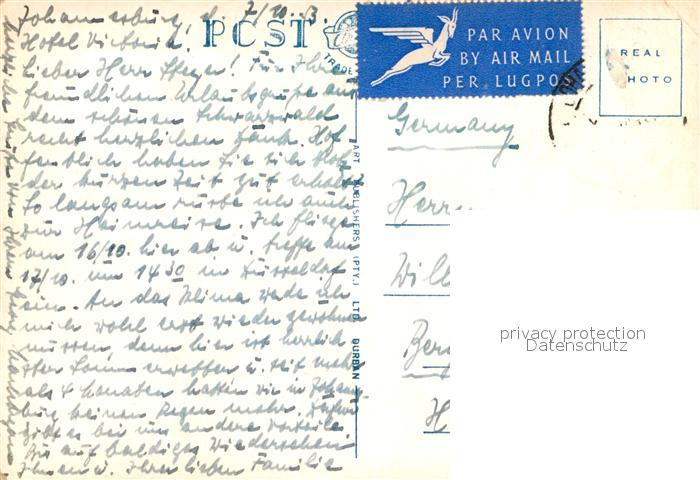 Johannesburg, d. 7/10.
Hotel Victoria.
POST
TRADE
PAR AVION
BY AIR MAIL
PER LUGPOS
REAL
PHOTO
lieber Herr! Für Ihre
freundlichen Urlaubsgrüße aus
dem schönen Schwarzwald
recht herzlichen Dank. Hof
fentlich haben Sie sich trotz
der kurzen Zeit gut erholt.
So langsam rüste ich auch
zur Heimreise. Ich fliege
am 16/10. hier ab u. treffe am
17/10. um 14 30 in Düsseldorf
ein. An das Klima werde ich
mich wohl erst wieder gewöhnen
müssen, denn hier ist herrlich
ster Sommer u. seit mehr
als 4 Monaten hatten wir in Johannes
burg keinen Regen mehr. Dafür
gibt es bei uns andere Vorteile
Bis auf baldiges Wiedersehen
Ihnen u. Ihrer lieben Familie
herzliche Grüße von Ihrem
ART PUBLISHERS (PTY.) LTD. DURBAN
Germany
Herr
Will
Berg
H
privacy protection
Datenschutz